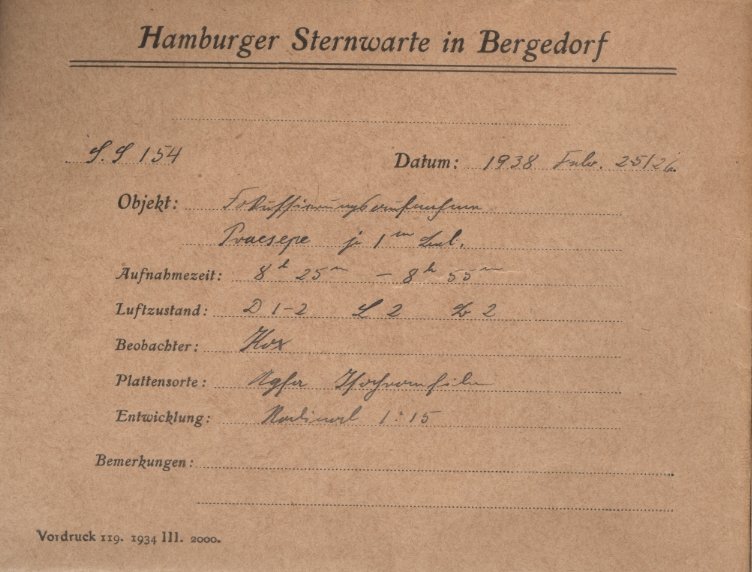 Hamburger Sternwarte in Bergedorf
S.S 154 Datum: 1938 Febr. 25/26.
Objekt: Fokussierungsaufnahme
Praesepe je 1 m bel.
Aufnahmezeit: 8 h 25 m – 8 h 55 m
Luftzustand: D 1-2 L 2 Z 2
Beobachter: Hox
Plattensorte: Agfa Isochromfilm
Entwicklung: Rodinal 1:15
Bemerkungen:
Vordruck 119. 1934 III. 2000.